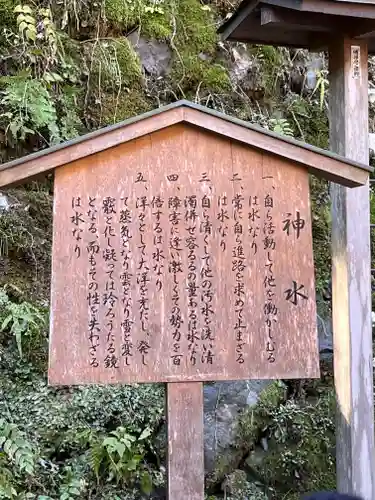 神水
一、自ら活動して他を働かしむる
は水なり
二、常に自ら進路を求めて止まざる
は水なり
三、自ら清くして他の汚水を洗い清
濁併せ容るるの量あるは水なり
四、障害に逢い激しくその勢力を百
倍するは水なり
五、洋々として大洋を充たし、発し
て蒸気となり雲となり雪と変し
霰と化し凝っては玲ろうたる鏡
となる、而もその性を失わざる
は水なり